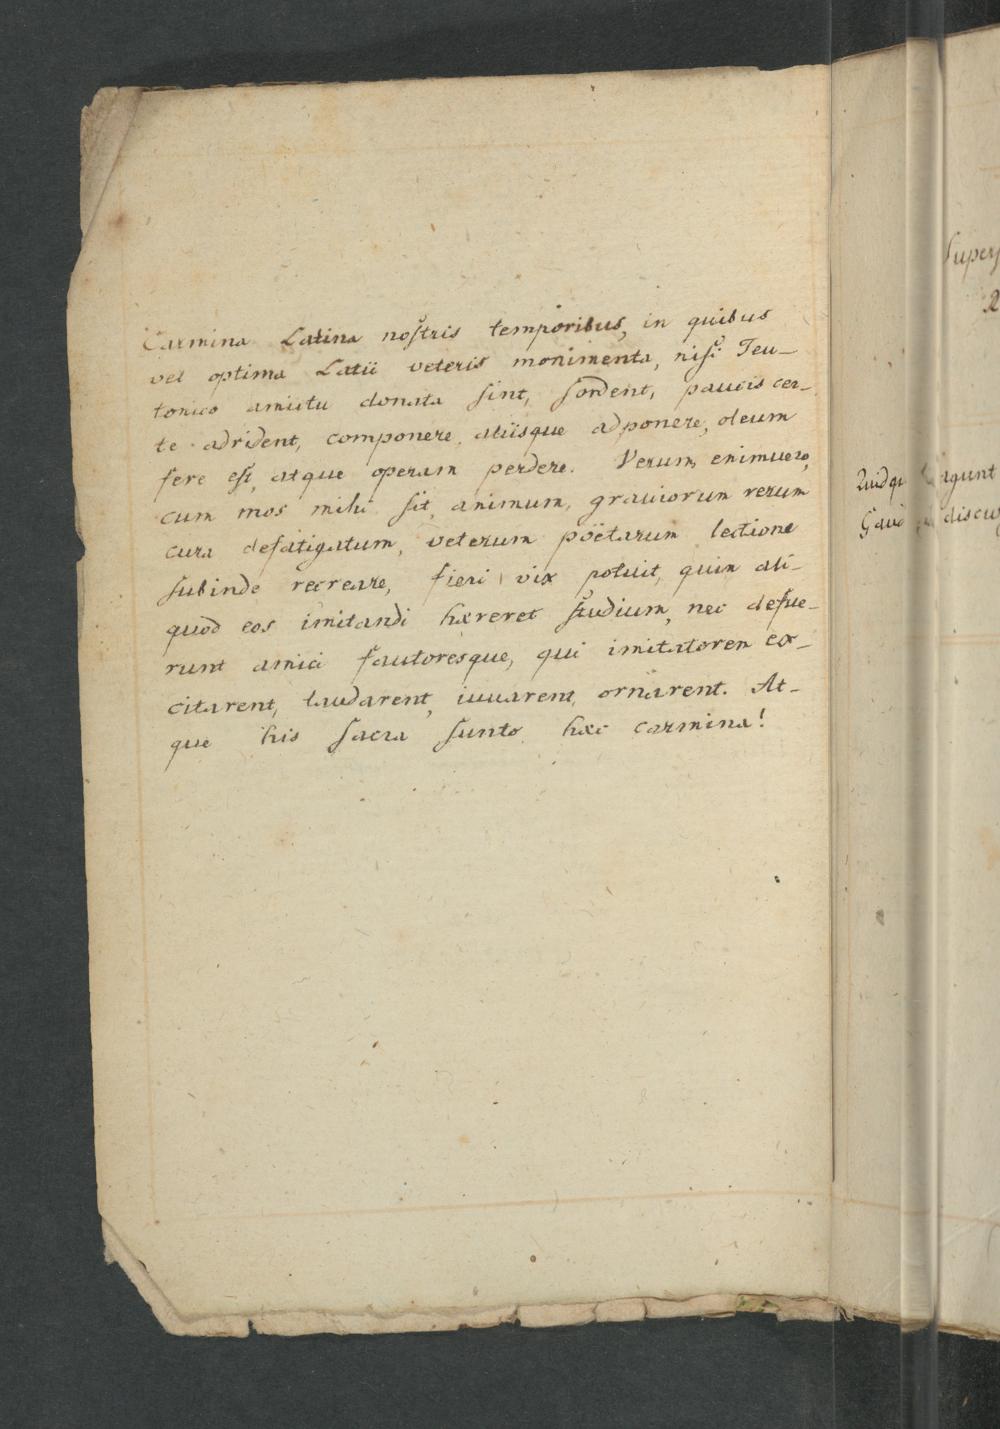 Carmina Latina nostris temporibus, in quibus
vel optima Latii veteris monimenta, nisi Teu-
tonico amictu donata sint, sordent, paucis cer-
te adrident, componere, aliisque adponere, oleum
fere est, atque operam perdere. Verum, enimuero,
cum mos mihi sit, animum, grauiorum rerum
cura defatigatum, veterum poëtarum lectione
subinde recreare, fieri vix potuit, quin ali-
quod eos imitandi hæreret studium, nec defue-
runt amici fautoresque, qui imitatorem ex-
citarent, laudarent, iuuarent, ornarent. At-
que his sacra sunto hæc carmina!
Super
Quidqu agunt
Gaud discu